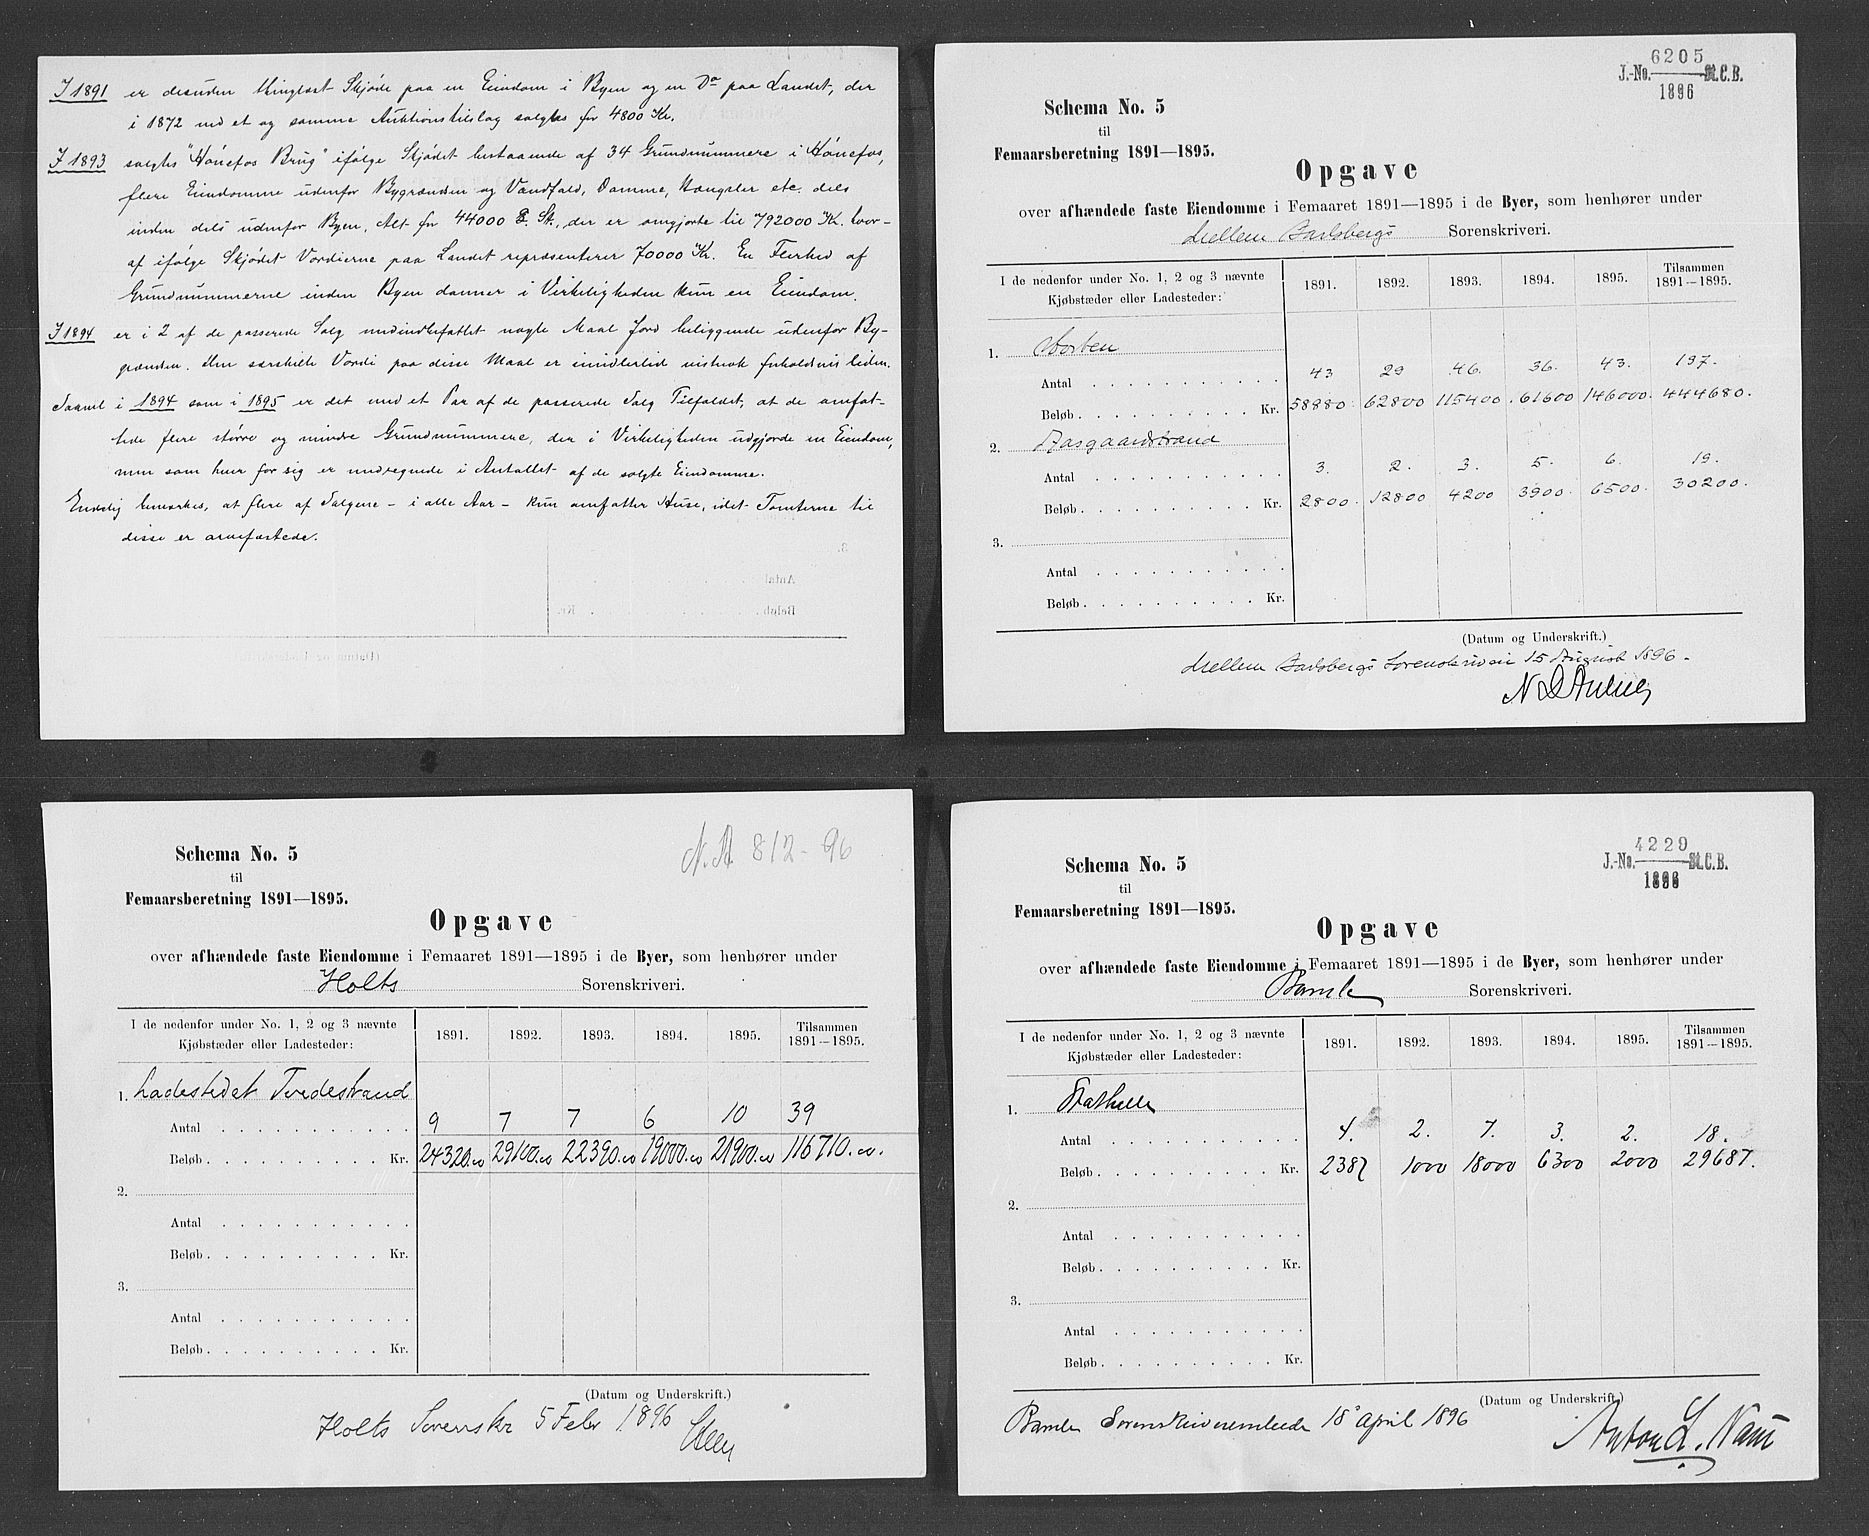 I 1891 er desuden thinglæst Skjøde paa en Eiendom i Byen og en Do paa Landet, der
i 1872 ved et og samme Auktionstilslag solgtes for 4800 Kr.
I 1893 solgtes "Hønefos Brug" ifølge Skjødet bestaaende af 34 Grundnummere i Hønefos,
flere Eiendomme udenfor Bygrændsen og Vandfald, Damme, Hængsler etc. dels
inden dels udenfor Byen. Alt for 44000 £ St., der er omgjorte til 792000 Kr. hvor-
af ifølge Skjødet Værdierne paa Landet repræsenterer 70000 Kr. En Flerhed af
Grundnummerne inden Byen danner i Virkeligheden kun en Eiendom.
I 1894 er i 2 af de passerede Salg medindbefattet nogle Maal Jord beliggende udenfor By-
grændsen. Den særskilte Værdi paa disse Maal er imidlertid vistnok forholdsvis liden.
Saavel i 1894 som i 1895 er det ved et Par af de passerede Salg Tilfældet, at de omfat-
tede flere større og mindre Grundnummere, der i Virkeligheden udgjorde en Eiendom,
men som hver for sig er medregnede i Antallet af de solgte Eiendomme.
Endelig bemærkes, at flere af Salgene – i alle Aar – kun omfatter Huse, idet Tomterne til
disse er arvefæstede.
6205
J.-No. St.C.B.
1896
Schema No. 5
til
Femaarsberetning 1891—1895.
Opgave
over afhændede faste Eiendomme i Femaaret 1891—1895 i de Byer, som henhører under
Mellem Jarlsbergs Sorenskriveri.
I de nedenfor under No. 1, 2 og 3 nævnte Kjøbstæder eller Ladesteder: 1891. 1892. 1893. 1894. 1895. Tilsammen 1891—1895.
1. Horten
Antal 43 29 46. 36. 43. 197.
Beløb Kr. 58980. 62800 115400. 61600 146000. 444680.
2. Aasgaardstrand
Antal 3. 2. 3. 5. 6. 19.
Beløb Kr. 2800. 12800 4200 3900. 6500. 30200.
3.
Antal
Beløb Kr.
(Datum og Underskrift.)
Mellem Jarlsbergs Sorenskriveri 15 August 1896.
Schema No. 5
N.A. 812-96
til
Femaarsberetning 1891—1895.
Opgave
over afhændede faste Eiendomme i Femaaret 1891—1895 i de Byer, som henhører under
Holts Sorenskriveri.
I de nedenfor under No. 1, 2 og 3 nævnte Kjøbstæder eller Ladesteder: 1891. 1892. 1893. 1894. 1895. Tilsammen 1891—1895.
1. Ladestedet Tvedestrand
Antal 9 7 7 6 10 39
Beløb Kr. 24320.00 29100.00 22390.00 19000.00 21900.00 116710.00.
2.
Antal
Beløb Kr.
3.
Antal
Beløb Kr.
(Datum og Underskrift.)
Holts Sorenskr 5 Febr 1896
4229
J.-No. St.C.B.
1896
Schema No. 5
til
Femaarsberetning 1891—1895.
Opgave
over afhændede faste Eiendomme i Femaaret 1891—1895 i de Byer, som henhører under
Bamle Sorenskriveri.
I de nedenfor under No. 1, 2 og 3 nævnte Kjøbstæder eller Ladesteder: 1891. 1892. 1893. 1894. 1895. Tilsammen 1891—1895.
1. Stathelle
Antal 4. 2. 7. 3. 2. 18.
Beløb Kr. 2387 1000 18000 6300 2000 29687.
2.
Antal
Beløb Kr.
3.
Antal
Beløb Kr.
(Datum og Underskrift.)
Bamle Sorenskriverembede 18 April 1896
Anton L.